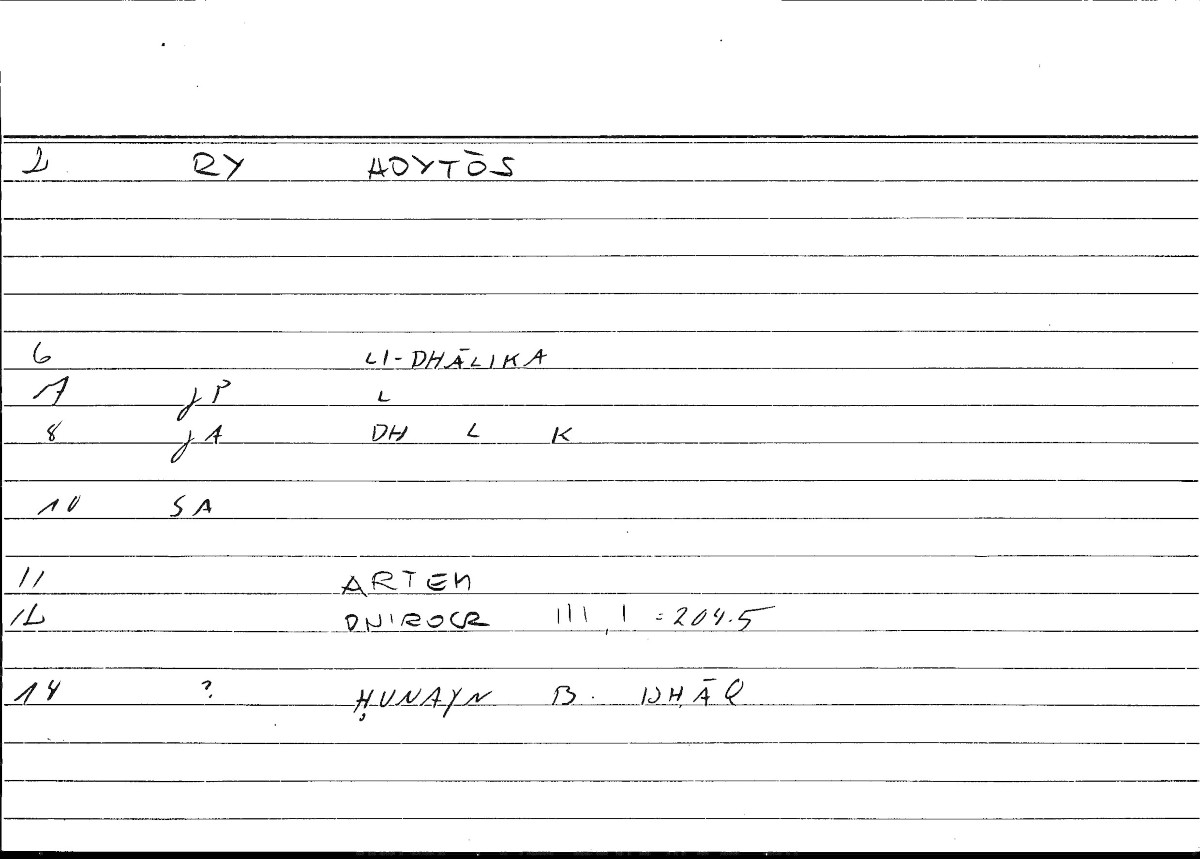 2 RY HOYTŌS
6 LI-DHĀLIKA
7 jP L
8 jA DH L K
10 SA
11 ARTEM
12 ONIROCR III,1 = 204.5
14 ? ḤUNAYN B. ISḤĀQ